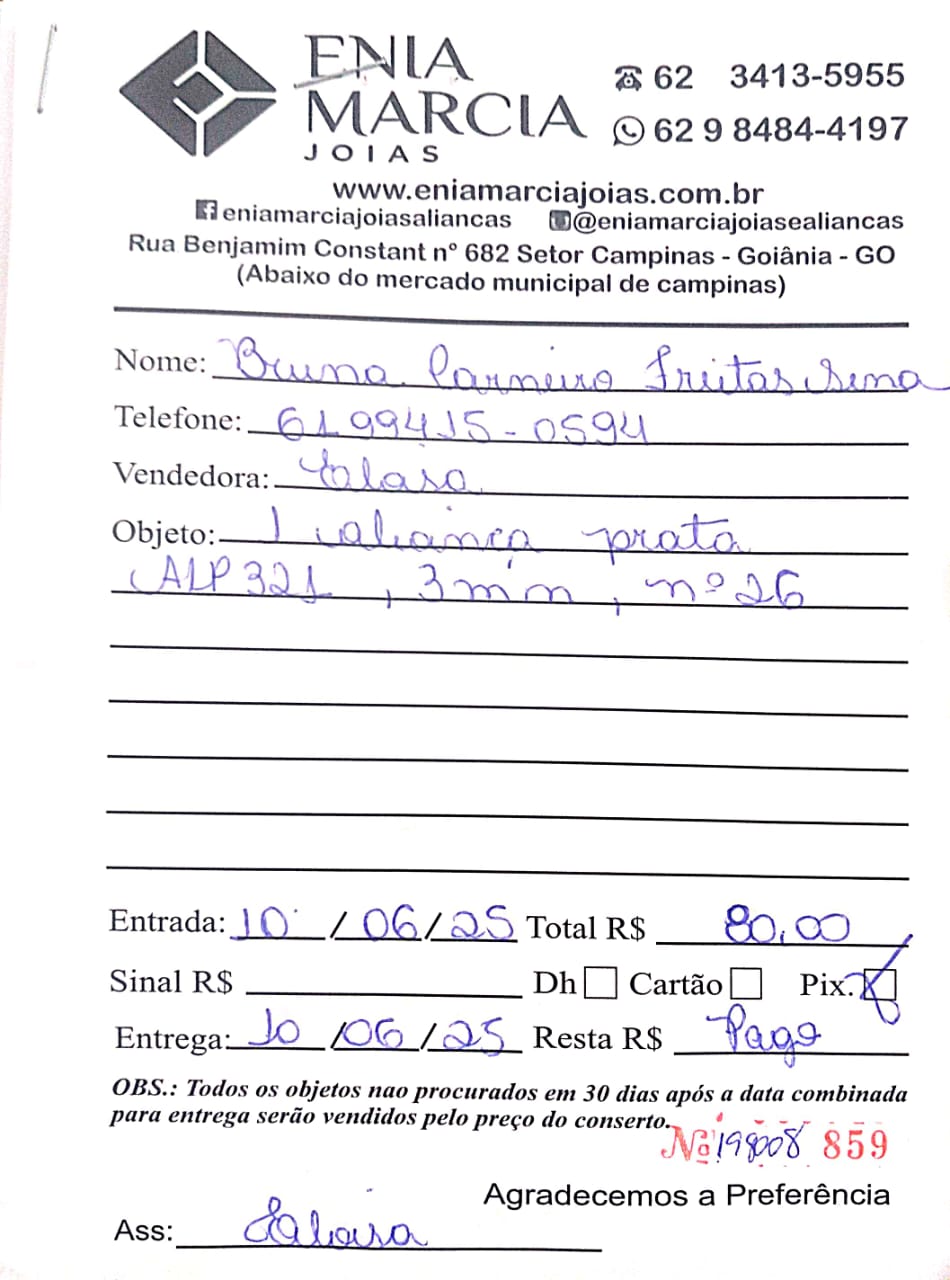 ENIA
MARCIA
JOIAS
62 3413-5955
62 9 8484-4197
www.eniamarciajoias.com.br
eniamarciajoiasaliancas @eniamarciajoiasealiancas
Rua Benjamim Constant nº 682 Setor Campinas - Goiânia - GO
(Abaixo do mercado municipal de campinas)
Nome: Bruna Carneiro Freitas Sena
Telefone: 61 99415-0594
Vendedora:
Objeto: 1 aliança prata
ALP321, 3mm, nº 26
Entrada: 10/06/25 Total R$ 80,00
Sinal R$ Dh Cartão Pix. X
Entrega: 10/06/25 Resta R$ Pago
OBS.: Todos os objetos nao procurados em 30 dias após a data combinada
para entrega serão vendidos pelo preço do conserto.
Nº 198008 859
Agradecemos a Preferência
Ass: